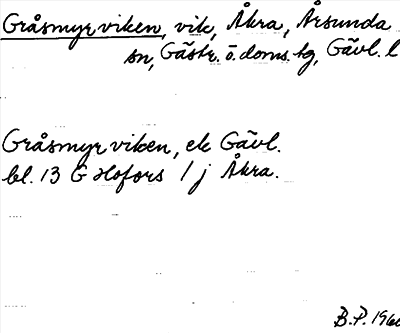 Gråsmyrviken, vik, Åkra, Årsunda
sn, Gästr. ö. doms. tg, Gävl. l
Gråsmyrviken, ek Gävl.
bl. 13 G Hofors 1 j Åkra.
B.P. 196